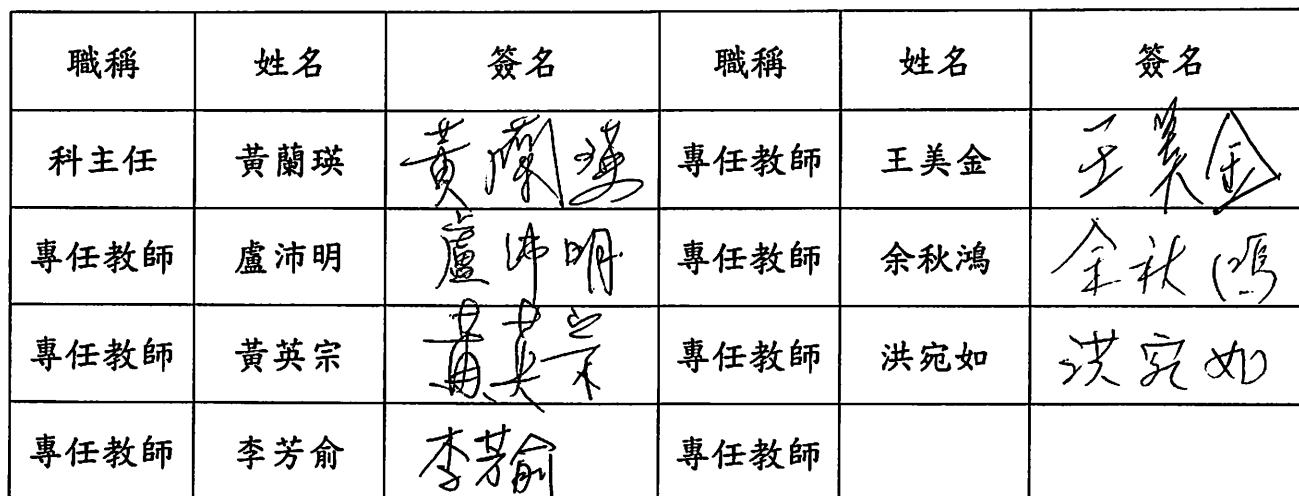 職稱 姓名 簽名 職稱 姓名 簽名
科主任 黃蘭瑛 黃蘭瑛 專任教師 王美金 王美金
專任教師 盧沛明 盧沛明 專任教師 余秋鴻 余秋鴻
專任教師 黃英宗 黃英宗 專任教師 洪宛如 洪宛如
專任教師 李芳俞 李芳俞 專任教師